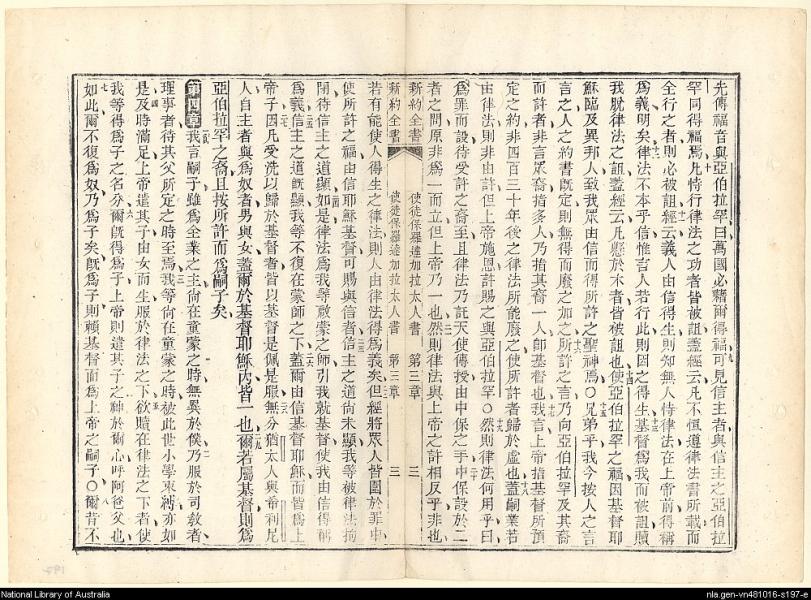 先傳福音與亞伯拉罕曰萬國必藉爾得福可見信主者與信主之亞伯拉
罕同得福焉凡恃行律法之功者皆被詛蓋經云凡不恒遵律法書所載而
全行之者則必被詛經云義人由信得生則知無人恃律法在上帝前得稱
爲義明矣律法不本乎信惟言人若行此則因之得生基督爲我而被詛贖
我脫律法之詛蓋經云凡懸於木者皆被詛也使亞伯拉罕之福因基督耶
穌臨及異邦人致我眾由信而得所許之聖神焉○兄弟乎我今按人之言
言之人之約書既定則無得而廢之加之所許之言乃向亞伯拉罕及其裔
而許者非言眾裔指多人乃指其裔一人卽基督也我言上帝指基督所預
定之約非四百三十年後之律法所能廢之使所許者歸於虛也蓋嗣業若
由律法則非由許但上帝施恩許賜之與亞伯拉罕○然則律法何用乎曰
爲罪而設待受許之裔至且律法乃託天使傳授由中保之手中保設於二
者之間原非爲一而立但上帝乃一也然則律法與上帝之許相反乎非也
新約全書 使徒保羅達加拉太人書 第三章 三
新約全書 使徒保羅達加拉太人書 第三章 三
若有能使人得生之律法則人由律法得爲義矣但經將眾人皆圈於罪中
使所許之福由信耶穌基督可賜與信者信主之道尚未顯我等被律法拘
閉待信主之道顯如是律法爲我等啟蒙之師引我就基督使我由信得稱
爲義信主之道既顯我等不復在蒙師之下蓋爾由信基督耶穌而皆爲上
帝子因凡受洗以歸於基督者皆以基督是佩是服無分猶太人與希利尼
人自主者與爲奴者男與女蓋爾於基督耶穌內皆一也爾若屬基督則爲
亞伯拉罕之裔且按所許而爲嗣子矣
第四章我言嗣子雖爲全業之主尚在童蒙之時無異於僕乃服於司教者
理事者待其父所定之時至焉我等尚在童蒙之時被此世小學束縛亦如
是及時滿足上帝遣其子由女而生服於律法之下欲贖在律法之下者使
我等得爲子之名分爾既得爲子上帝則遣其子之神於爾心呼阿爸父也
如此爾不復爲奴乃爲子矣既爲子則賴基督而爲上帝之嗣子○爾昔不
National Library of Australia
nla.gen-vn481016-s197-e